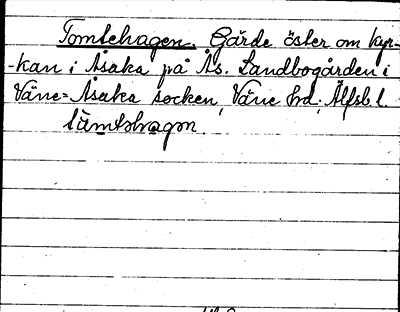 Tomtehagen. Gärde öster om kyr-
-kan i Åsaka på Ås. Landbogården i
Väne-Åsaka socken, Väne hd; Älfsb. l.